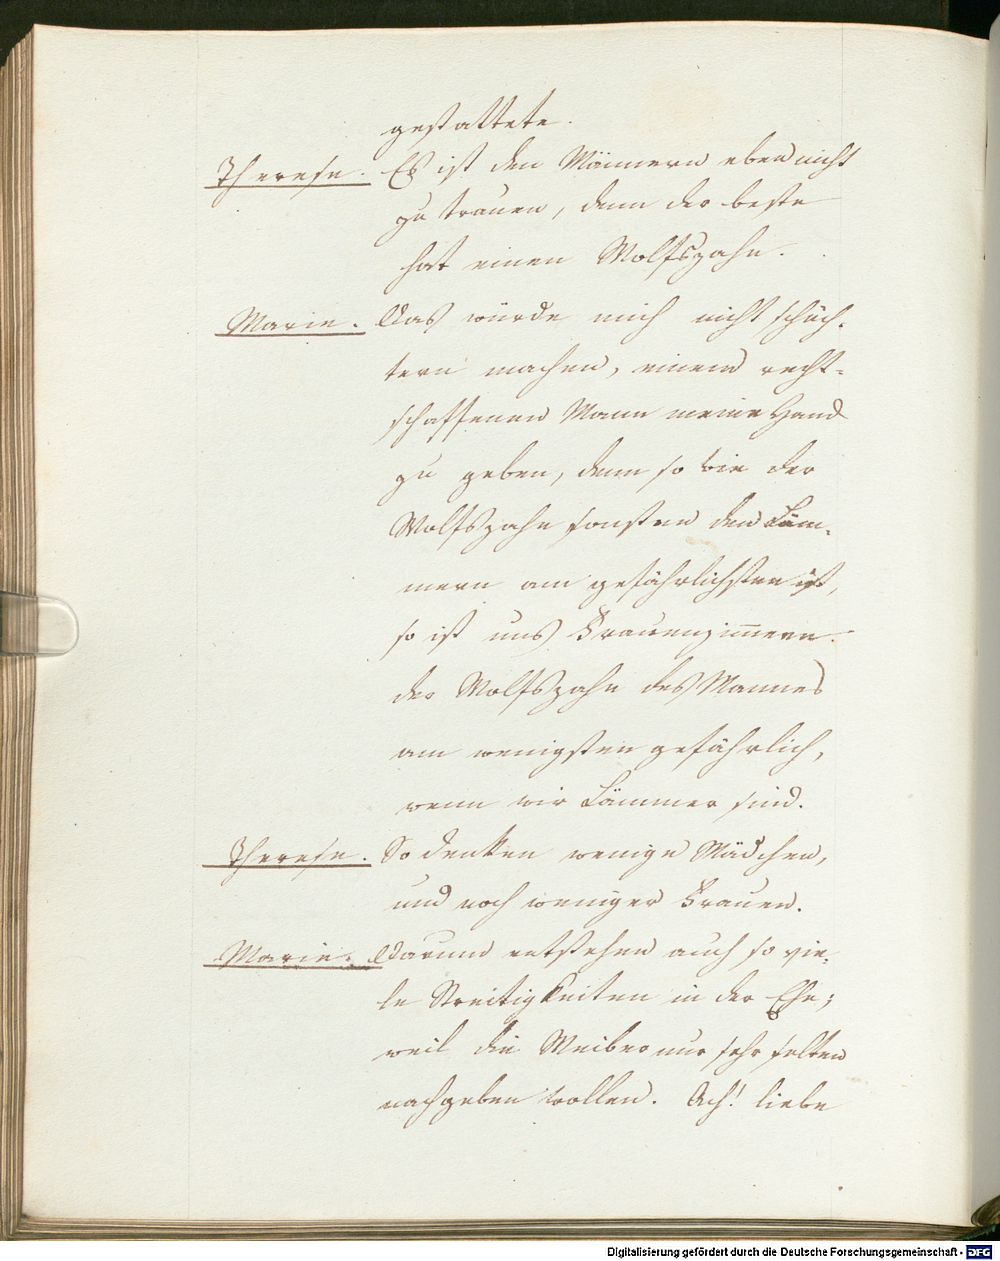 gestattete.
Therese. Es ist den Männern eben nicht
zu trauen, denn der beste
hat einen Wolfszahn.
Marie. Das würde mich nicht schüch-
tern machen, einem recht-
schaffenen Mann meine Hand
zu geben, denn so wie der
Wolfszahn sonsten den Läm-
mern am gefährlichsten ist,
so ist uns Frauenzimmern
der Wolfszahn des Mannes
am wenigsten gefährlich,
wenn wir Lämmer sind.
Therese. So denken wenige Mädchen,
und noch weniger Frauen.
Marie. Darum entstehen auch so vie-
le Streitigkeiten in der Ehe;
weil die Weiber nur sehr selten
nachgeben wollen. Ach! liebe
Digitalisierung gefördert durch die Deutsche Forschungsgemeinschaft - DFG